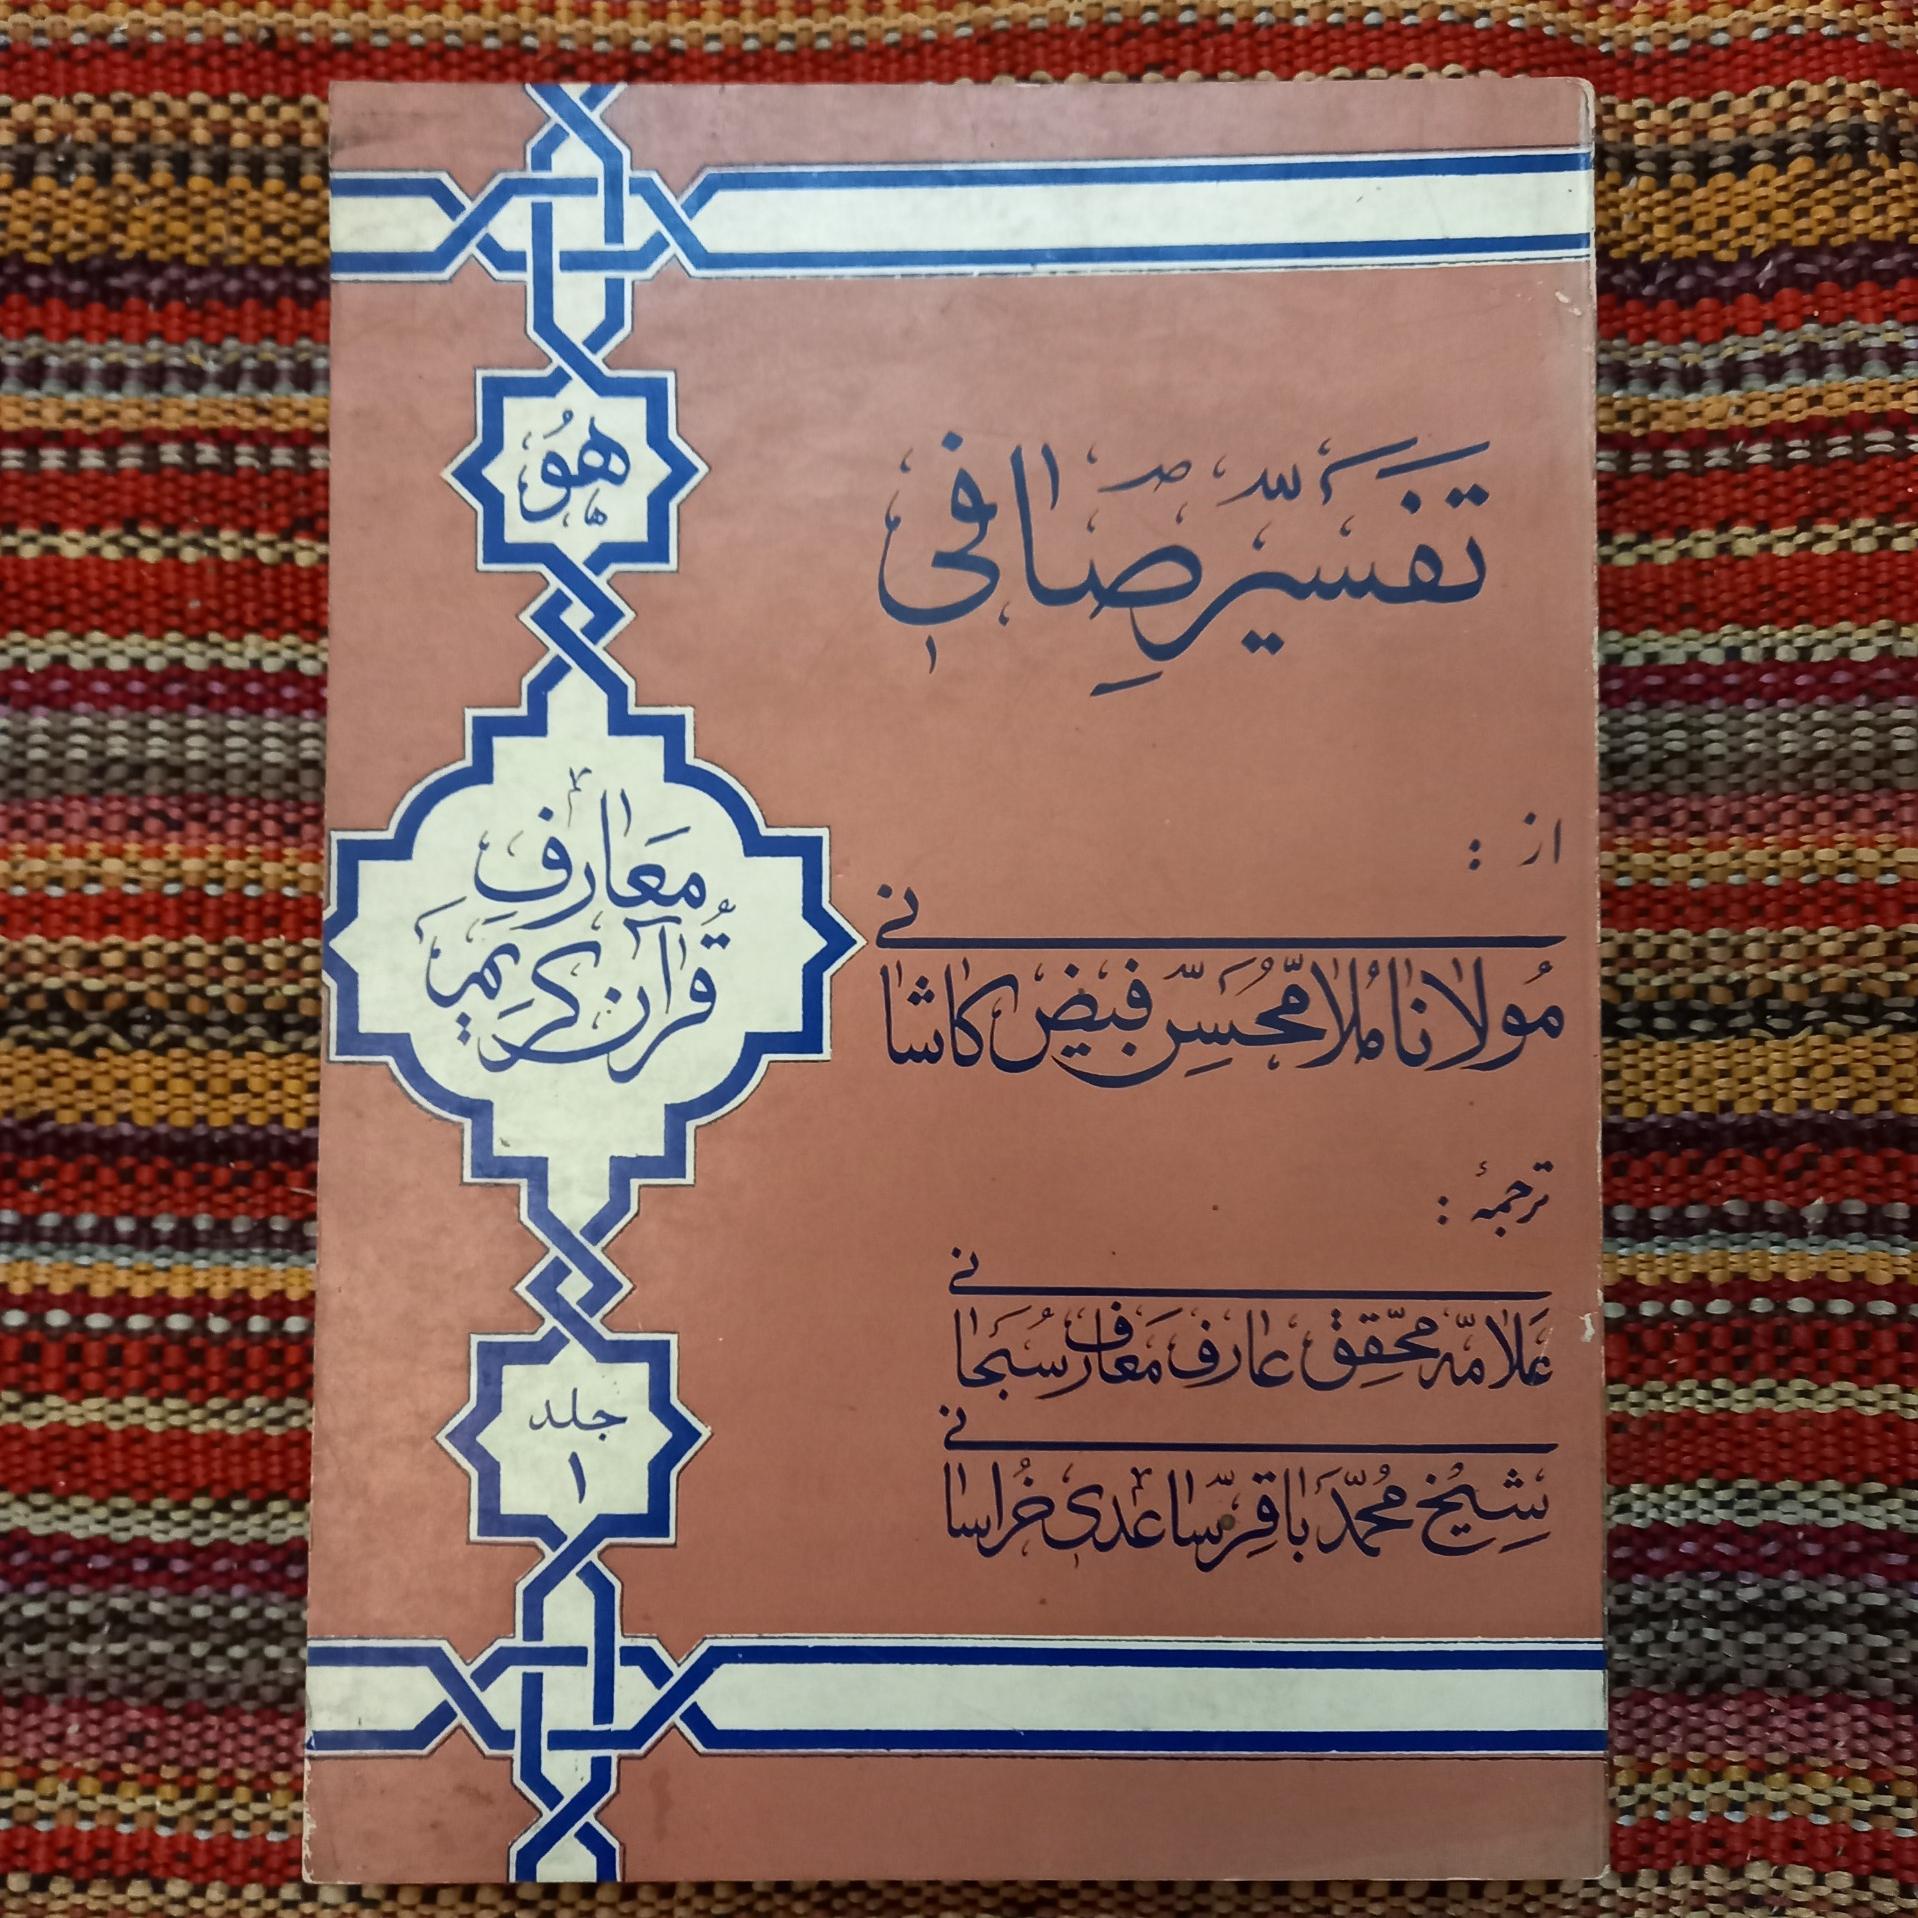 تفسیر صافی
از :
مولانا ملا محسن فیض کاشانی
ترجمهٔ :
علامه محقق عارف معارف سبحانی
شیخ محمد باقر ساعدی خراسانی
هو
معارف
قرآن کریم
جلد
۱